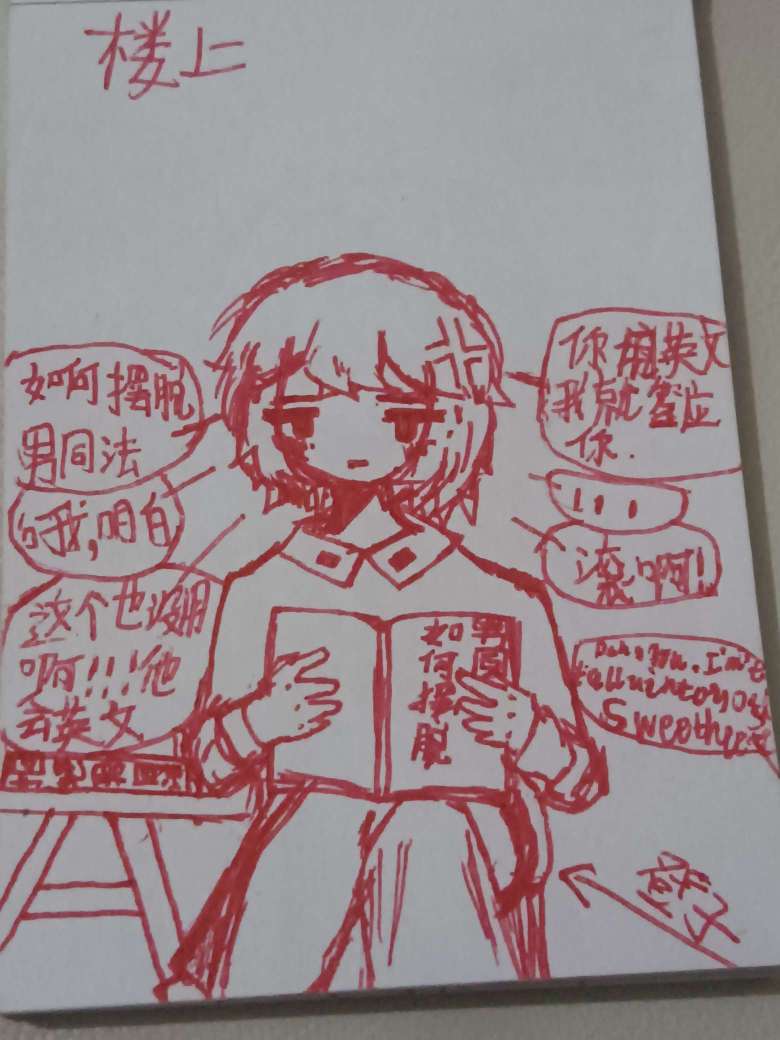 楼上
如何摆脱
男同法
哦,明白
这个也没用
啊!!!他
会英文
你用英文
我就答应
你.
!!!
滚啊!
I'm
Sweethe
如何摆脱
男同